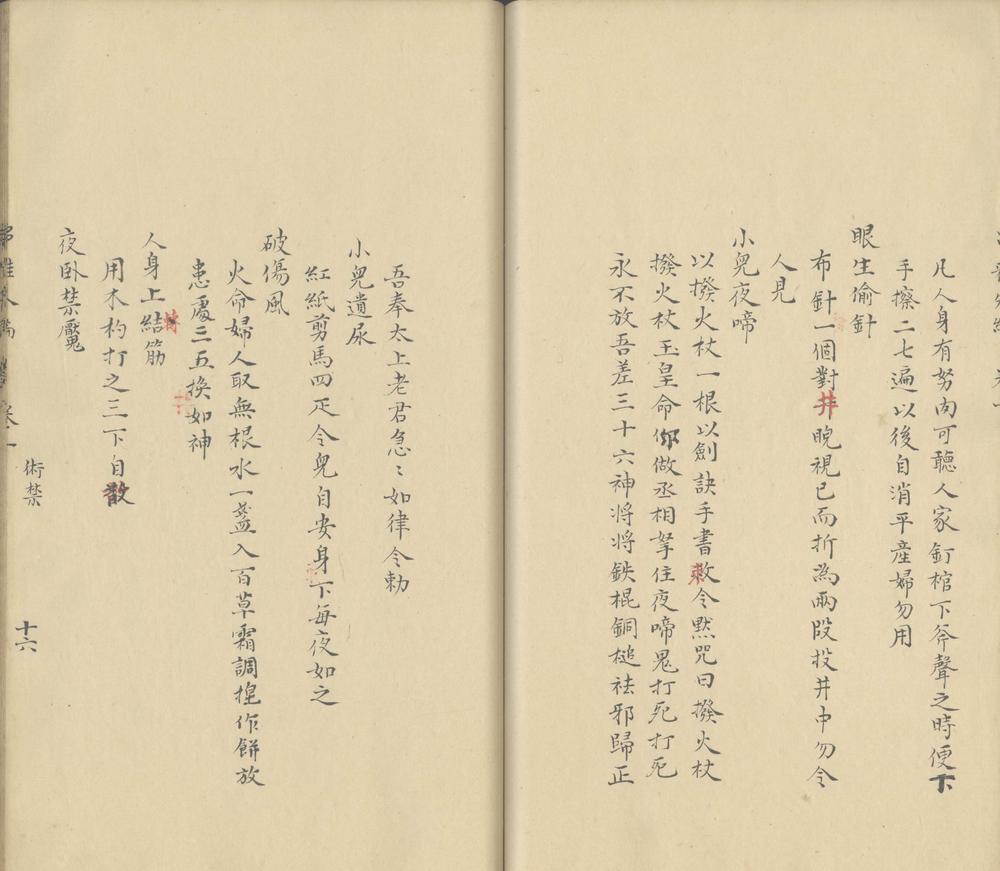 凡人身有努肉可聽人家釘棺下斧聲之時便下
手擦二七遍以後自消平產婦勿用
眼生偷針
布針一個對井睨視已而折為兩段投井中勿令
人見
小兒夜啼
以撥火杖一根以劍訣手書敕令黙咒曰撥火杖
撥火杖玉皇命你做丞相拏住夜啼鬼打死打死
永不放吾差三十六神将将鉄棍銅槌祛邪歸正
吾奉太上老君急〻如律令勅
小兒遺尿
紅紙剪馬四疋令兒自安身下每夜如之
破傷風
火命婦人取無根水一盞入百草霜調揑作餅放
患處三五換如神
人身上結筋
用木杓打之三下自散
夜卧禁魘
術禁
十六